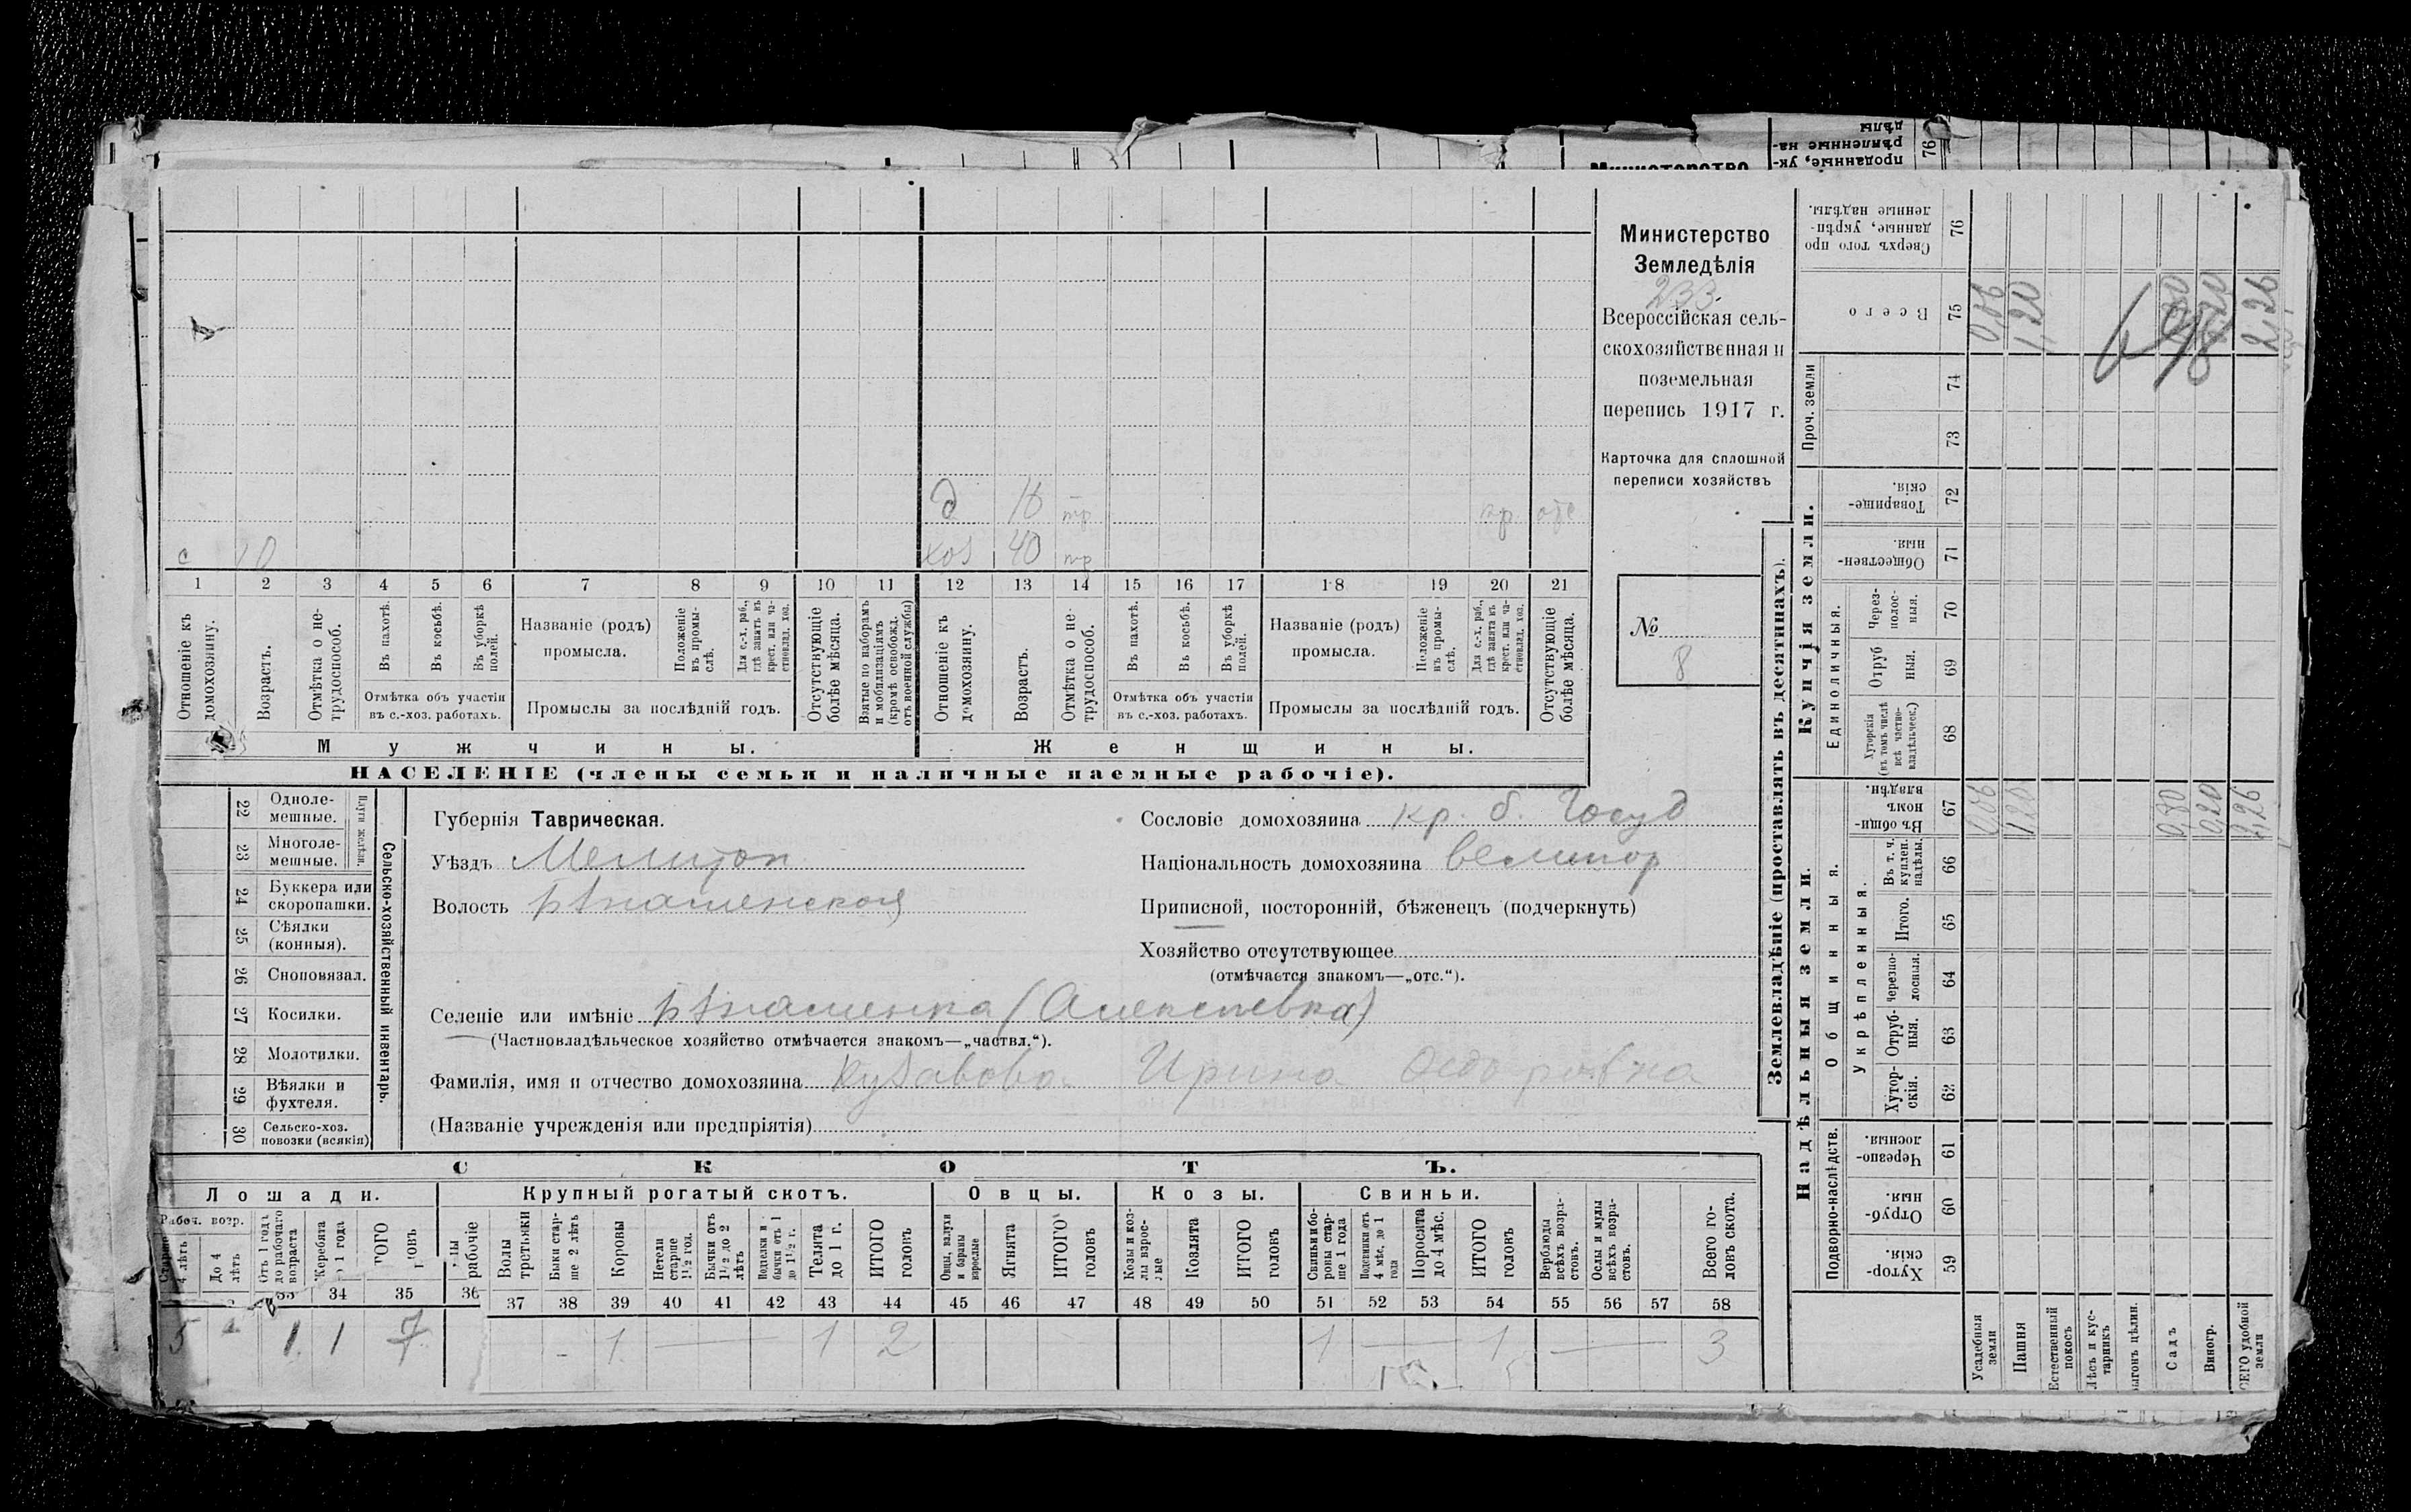 Министерство
Земледѣлія
233
Всероссійская сель-
скохозяйственная и
поземельная
перепись 1917 г.
Карточка для сплошной
переписи хозяйствъ
№
8
д 16 тр
с 10 хоз 40 тр
1 2 3 4 5 6 7 8 9 10 11 12 13 14 15 16 17 18 19 20 21
Отношеніе къ домохозяину.
Возрастъ.
Отмѣтка о не-трудоспособ.
Въ пахотѣ.
Въ косьбѣ.
Въ уборкѣ полей.
Отмѣтка объ участіи въ с.-хоз. работахъ.
Названіе (родъ) промысла.
Положеніе въ промы-слѣ.
Для с.-х. раб., гдѣ занятъ въ крест. или ча-стновлад. хоз.
Промыслы за послѣдній годъ.
Отсутствующіе болѣе мѣсяца.
Взятые по наборамъ и мобилизаціямъ (кромѣ освобожд. отъ военной службы)
Отношеніе къ домохозяину.
Возрастъ.
Отмѣтка о не-трудоспособ.
Въ пахотѣ.
Въ косьбѣ.
Въ уборкѣ полей.
Отмѣтка объ участіи въ с.-хоз. работахъ.
Названіе (родъ) промысла.
Положеніе въ промы-слѣ.
Для с.-х. раб., гдѣ занята въ крест. или ча-стновлад. хоз.
Промыслы за послѣдній годъ.
Отсутствующіе болѣе мѣсяца.
Мужчины. Женщины.
НАСЕЛЕНІЕ (члены семьи и наличные наемные рабочіе).
Сельско-хозяйственный инвентарь.
Плуги желѣзн.
22 Одноле-мешные.
23 Многоле-мешные.
24 Буккера или скоропашки.
25 Сѣялки (конныя).
26 Сноповязал.
27 Косилки.
28 Молотилки.
29 Вѣялки и фухтеля.
30 Сельско-хоз. повозки (всякія)
Губернія Таврическая.
Уѣздъ Мелитоп
Волость
Сословіе домохозяина кр. б. Госуд
Національность домохозяина великор
Приписной, посторонній, бѣженецъ (подчеркнуть)
Хозяйство отсутствующее
(отмѣчается знакомъ—„отс.“).
Селеніе или имѣніе (Алексеевка)
(Частновладѣльческое хозяйство отмѣчается знакомъ—„частвл.“).
Фамилія, имя и отчество домохозяина Ирина
(Названіе учрежденія или предпріятія)
СКОТЪ.
Лошади. Крупный рогатый скотъ. Овцы. Козы. Свиньи.
Рабоч. возр.
4 лѣтъ
До 4 лѣтъ
Отъ 1 года до рабочаго возраста
Жеребята
1 года
рабочіе
Волы третьяки
Быки стар-ше 2 лѣтъ
Коровы
Нетели старше 1½ год.
Бычки отъ 1½ до 2 лѣтъ
Подтелки и бычки отъ 1 до 1½ г.
Телята до 1 г.
ИТОГО головъ
Овцы, валухи и бараны взрослые
Ягнята
ИТОГО головъ
Козы и коз-лы взрос-лые
Козлята
ИТОГО головъ
Свиньи и бо-ровы стар-ше 1 года
Подсвинки отъ 4 мѣс. до 1 года
Поросята до 4 мѣс.
ИТОГО головъ
Верблюды всѣхъ возра-стовъ.
Ослы и мулы всѣхъ возра-стовъ.
Всего го-ловъ скота.
34 35 36 37 38 39 40 41 42 43 44 45 46 47 48 49 50 51 52 53 54 55 56 57 58
5 1 1 7 1 1 2 1 1 3
Землевладѣніе (проставлять въ десятинахъ).
Купчія земли.
Надѣльныя земли.
Сверхъ того про-данные, укрѣп-ленные надѣлы. 76
Всего 75
Проч. земли 74 73
Товарище-скія. 72
Обществен-ныя. 71
Единоличныя.
Через-полос-ныя. 70
Отруб-ныя. 69
Хуторскія (въ томъ числѣ всѣ частно-владѣльческ.) 68
Общинныя.
Въ общи-номъ владѣн. 67
Укрѣпленныя.
Въ т. ч. куплен. надѣлы. 66
Итого. 65
Черезпо-лосныя. 64
Отруб-ныя. 63
Хутор-скія. 62
Подворно-наслѣдств.
Черезпо-лосныя. 61
Отруб-ныя. 60
Хутор-скія. 59
Усадебныя земли 0,06 0,06
Пашня 1,20 1,20
Естественный покосъ
Лѣсъ и кус-тарникъ
Выгонъ цѣлин.
Садъ 0,80
Виногр. 0,20
ВСЕГО удобной земли 2,26 2,26